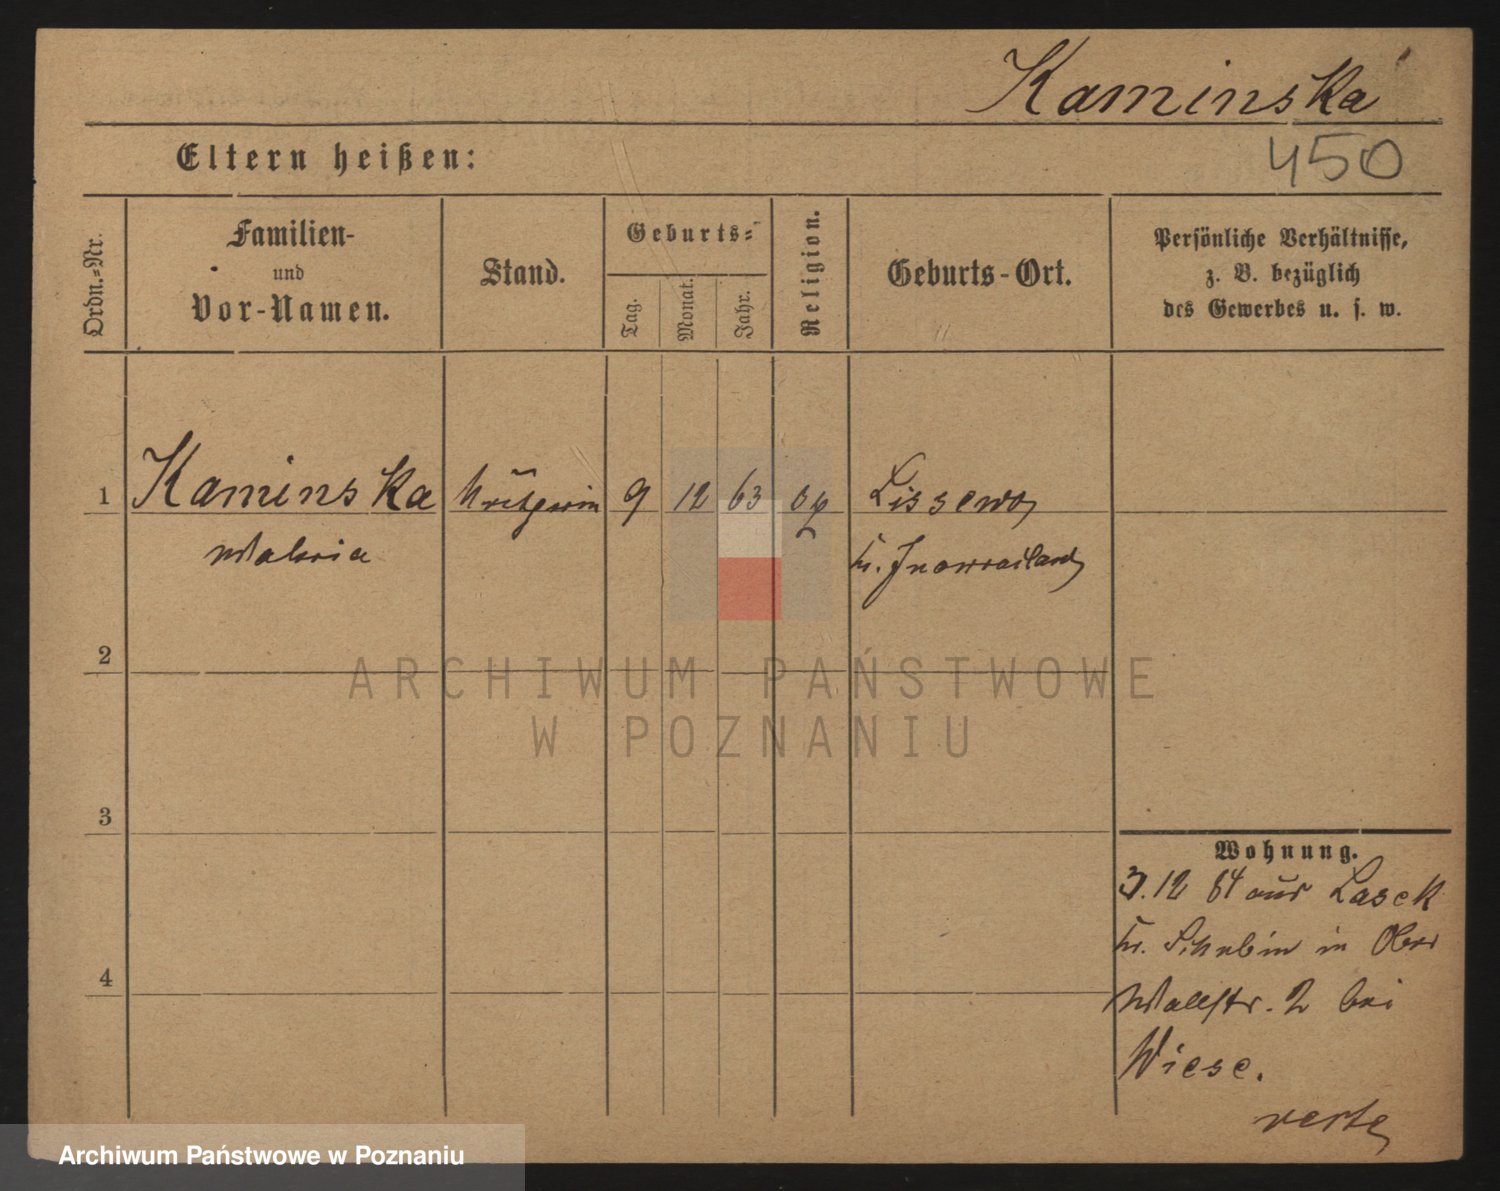 Kaminska
450
Eltern heißen:
Ordn.-Nr.
Familien-
und
Vor-Namen.
Stand.
Geburts-
Tag.
Monat.
Jahr.
Religion.
Geburts-Ort.
Persönliche Verhältnisse,
z. B. bezüglich
des Gewerbes u. s. w.
1
Kaminska
9
12
63
Lissewo
Kr. Inowrazlaw
2
3
4
Wohnung.
3. 12 84 aus Lasek
Kr. Schubin in Ober
Wallstr. 2 bei
Wiese.
verte
ARCHIWUM PAŃSTWOWE
W POZNANIU
Archiwum Państwowe w Poznaniu